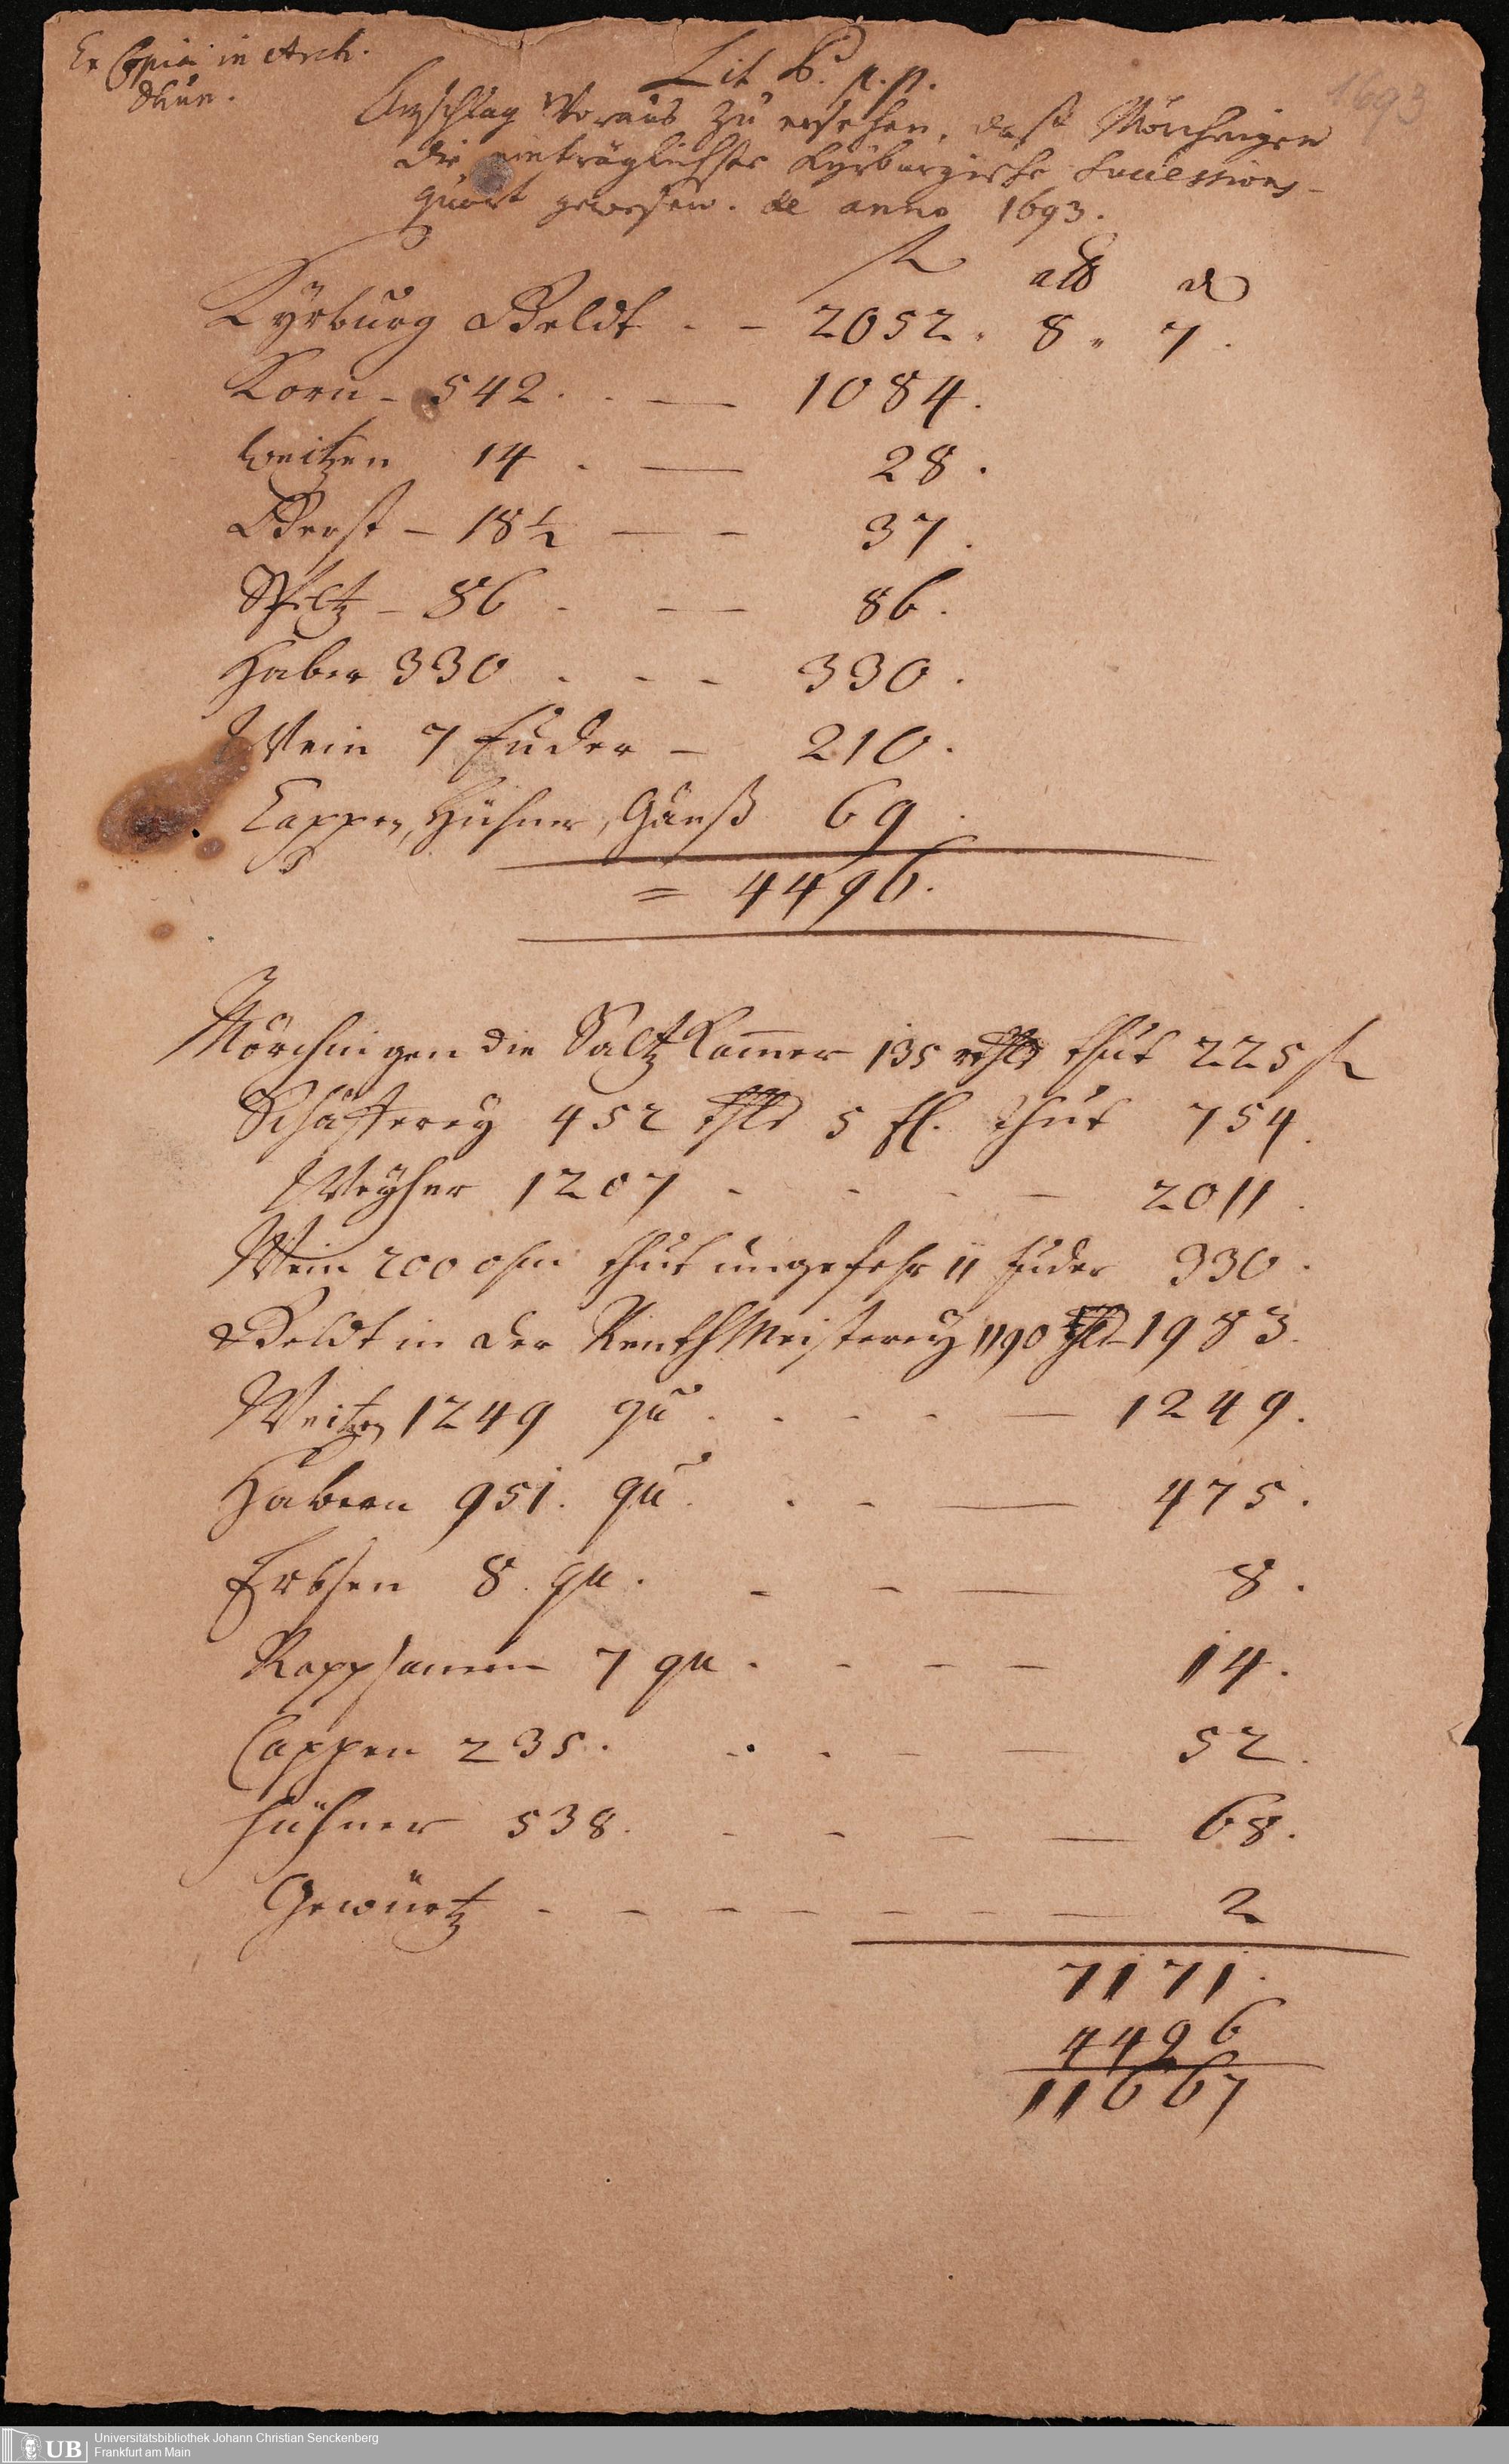 Ex Copia in Arch.
Dhun.
Lit. B. p. p.
1693
Anschlag Woraus zu ersehen, daß Mörchingen
die einträglichste Kyrburgische Successions-
quart gewesen. de anno 1693.
fl alb d
Kyrburg Geldt - - 2052. 8. 7.
Korn - 542. - — 1084.
Weitzen 14 - — 28.
Gerst - 18½ — - 37.
Speltz - 86 - - — 86.
Haber 330 - - - 330.
Wein 7 Fuder - 210.
Cappen, Hühner, Gänß 69.
= 4496.
Mörchingen die Saltz Kammer 135 rthlr thut 225 fl
Schäfferey 452 thlr 5 fl. thut 754.
Weyher 1207 - - - - 2011.
Wein 200 ohm thut ungefehr 11 fuder 330.
Geldt in der RenthMeisterey 1190 thlr - 1983.
Weitzen 1249 qu. - - - — 1249.
Habern 951. qu. - - — 475.
Erbsen 8. qu. - - — 8.
Rappsamen 7 qu. - - - 14.
Cappen 235. - - - — 52.
Hühner 538. - - - — 68.
Gewürtz - - - - - - — 2
7171.
4496
11667
UB
Universitätsbibliothek Johann Christian Senckenberg
Frankfurt am Main